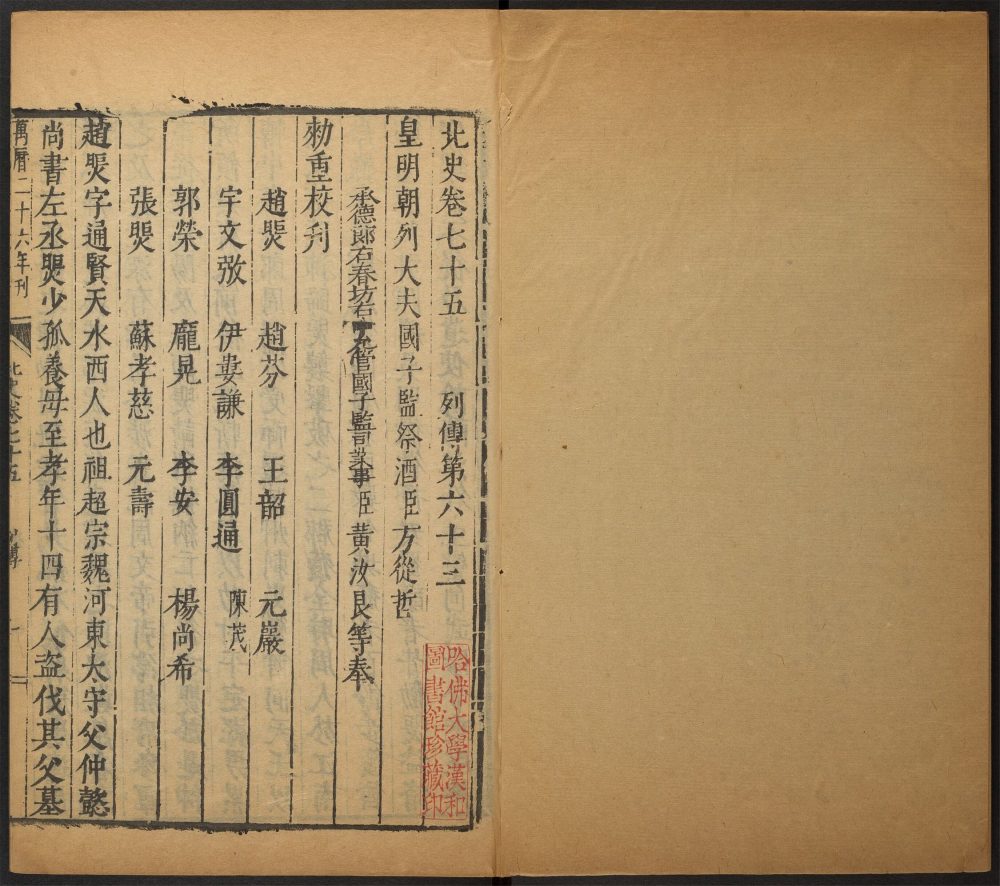 北史卷七十五　列傳第六十三
皇明朝列大夫國子監祭酒臣方從哲
承德郎右春坊右管國子監司業事臣黃汝良等奉
勑重校刋
趙煚　趙芬　王韶　元巖
宇文㢸　伊婁謙　李圓通　陳茂
郭榮　龐晃　李安　楊尚希
張煚　蘇孝慈　元壽
趙煚字通賢天水西人也祖超宗魏河東太守父仲懿
尚書左丞煚少孤養母至孝年十四有人盜伐其父墓
萬曆二十六年刊
北史卷七十五　列傳　一
哈佛大學漢和
圖書館珍藏印